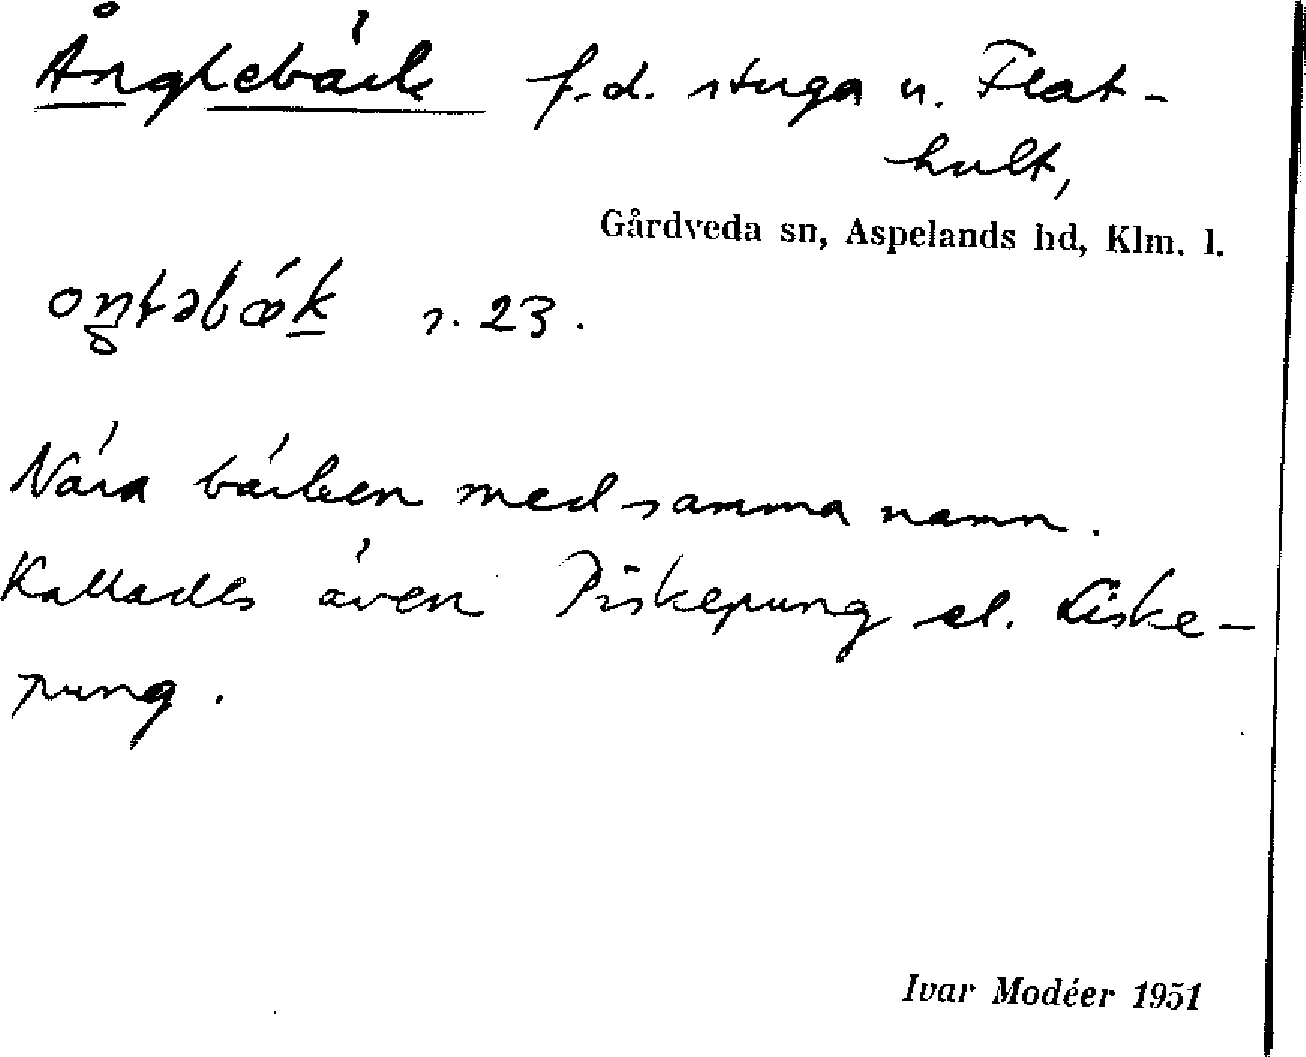 Änglebäck f.d. stuga u. Flat-
hult,
Gårdveda sn, Aspelands hd, Klm. l.
s. 23.
Nära bäcken med samma namn.
Kallades även Piskepung el. Fiske-
pung.
Ivar Modéer 1951